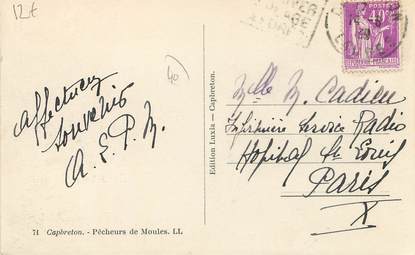 12€
40
40c
Affectueux
souvenir
A. E. P. M.
71 Capbreton. - Pêcheurs de Moules. LL
Edition Luxia — Capbreton.
Mlle M. Cadieu
Infirmière Service Radio
Hopital St Louis
Paris
X